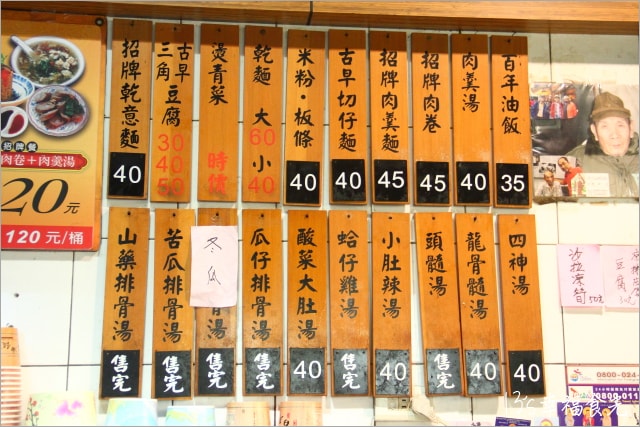 百年油飯 35
肉羹湯 40
招牌肉卷 45
招牌肉羹麵 45
古早切仔麵 40
米粉·板條 40
乾麵 大60 小40
燙青菜 時價
古早三角豆腐 30 40 50
招牌乾意麵 40
四神湯 40
龍骨髓湯 40
頭髓湯 售完
小肚辣湯 40
蛤仔雞湯 售完
酸菜大肚湯 40
瓜仔排骨湯 售完
冬瓜骨湯 售完
苦瓜排骨湯 售完
山藥排骨湯 售完
招牌餐
肉卷+肉羹湯
20元
120元/桶
沙拉涼筍 50元
豆腐
0800-024
0800-011
幸福食光